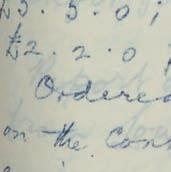 £3. 3. 0;
£2. 2. 0
Ordered
on the Cons